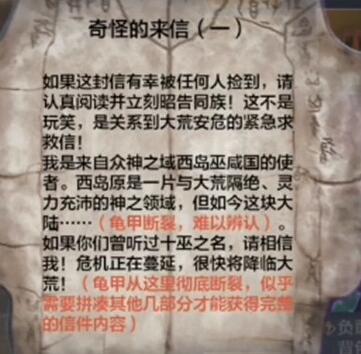 奇怪的来信（一）
如果这封信有幸被任何人捡到，请
认真阅读并立刻昭告同族！这不是
玩笑，是关系到大荒安危的紧急求
救信！
我是来自众神之域西岛巫咸国的使
者。西岛原是一片与大荒隔绝、灵
力充沛的神之领域，但如今这块大
陆……（龟甲断裂，难以辨认）。
如果你们曾听过十巫之名，请相信
我！危机正在蔓延，很快将降临大
荒！（龟甲从这里彻底断裂，似乎
需要拼凑其他几部分才能获得完整
的信件内容）